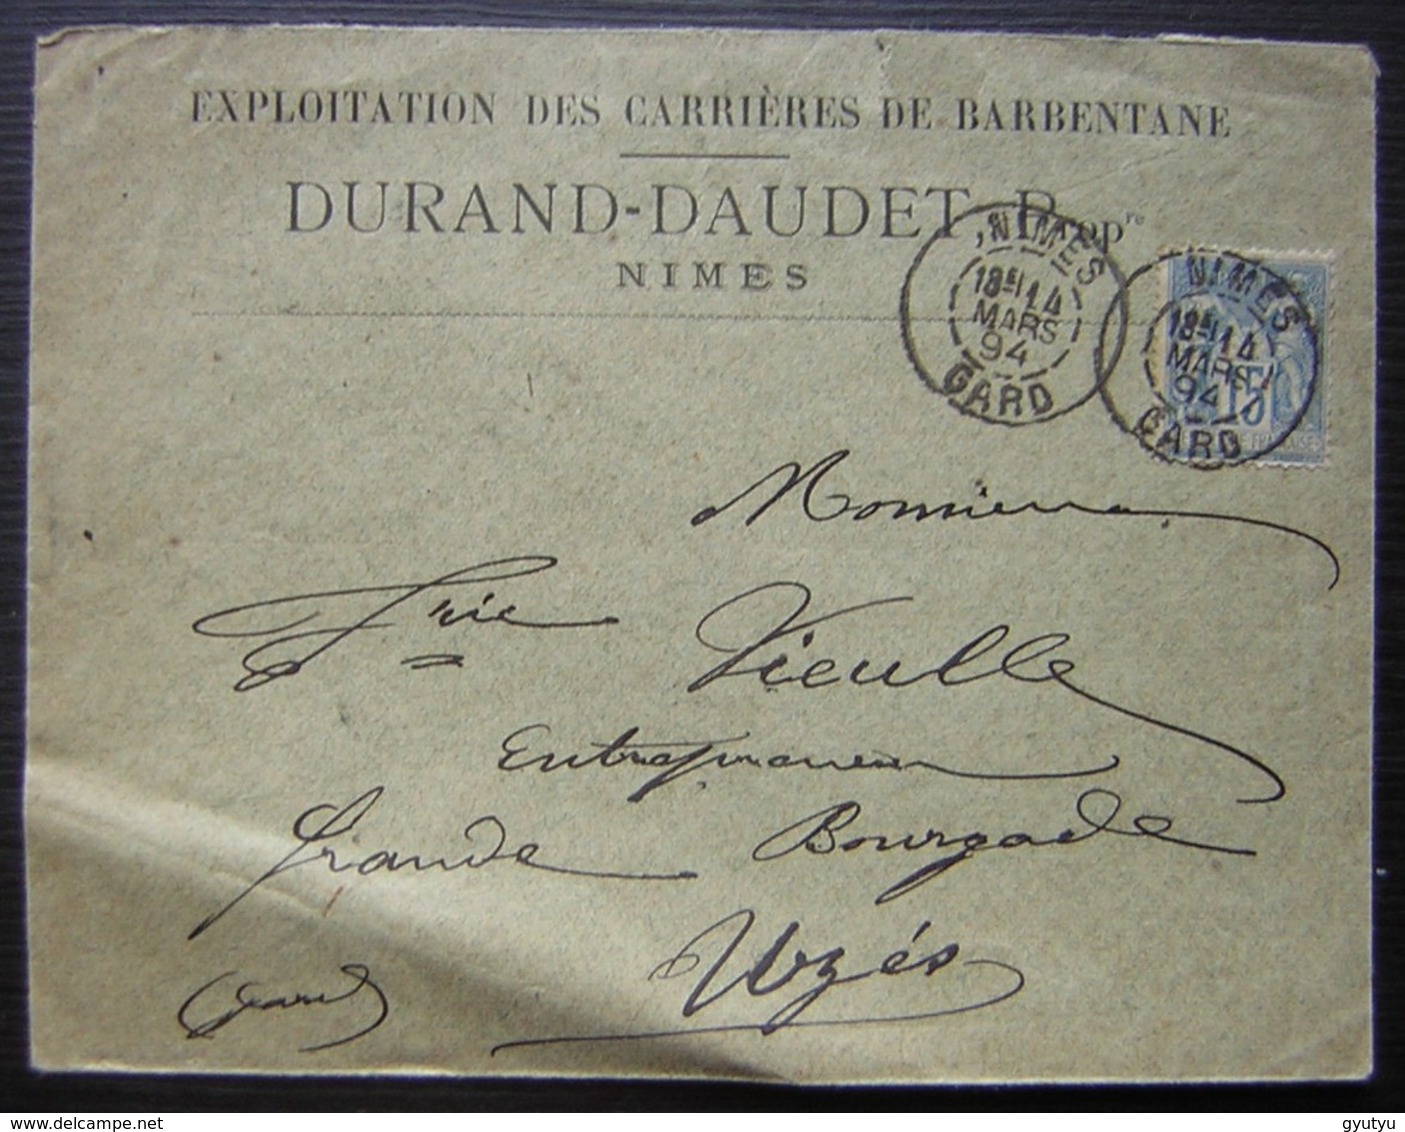 EXPLOITATION DES CARRIÈRES DE BARBENTANE
DURAND-DAUDET, Propre
NIMES
NIMES
18E 14
MARS
94
GARD
NIMES
18E 14
MARS
94
GARD
15
FRANÇAISE
Monsieur
Vieulle
Entrepreneur
Grande Bourgade
Uzès
(Gard)
gyutyu